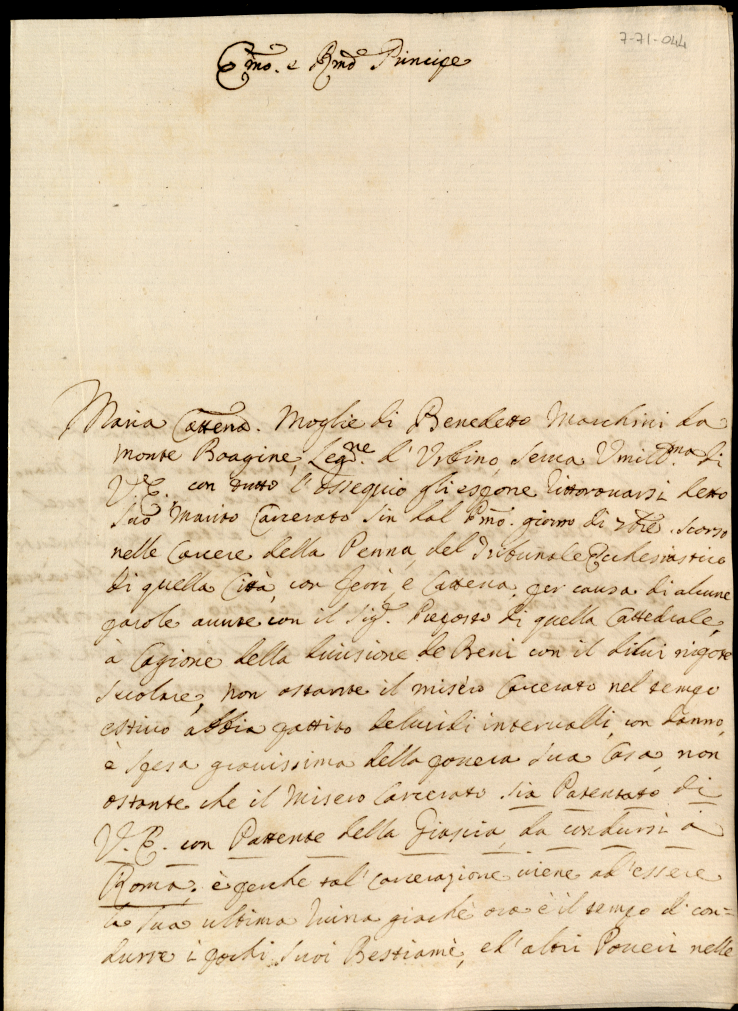 7-71-044
Emo. e Rmo Principe
Maria Cattena. Moglie di Benedetto Marchini da
monte Boagine, Legne. d'Urbino, Serva Umilma di
V. E., con tutto l'ossequio gli espone rittorovarsi detto
suo Marito Carcerato sin dal Pmo. giorno di 7bre. scorso
nelle Carcere della Penna, del Tribunale Ecclesiastico
di quella Città, con ferri, e Cattena, per causa di alcune
parole avute con il Sigr. Preposto di quella Cattedrale,
à Cagione della divisione de Beni con il dilui nipote
Secolare, non ostante il misero Carcerato nel tempo
estivo abbia pattito de lucidi intervalli, con danno,
è spesa gravissima della povera sua Casa, non
ostante che il Misero Carcerato sia Patentato di
V. E. con Pattente della Grascia, da condursi à
Roma. è perche tal' Carcerazione viene ad'essere
la sua ultima ruina giachè ora è il tempo di con=
durre i pochi suoi Bestiami, ed'altri Poveri nelle